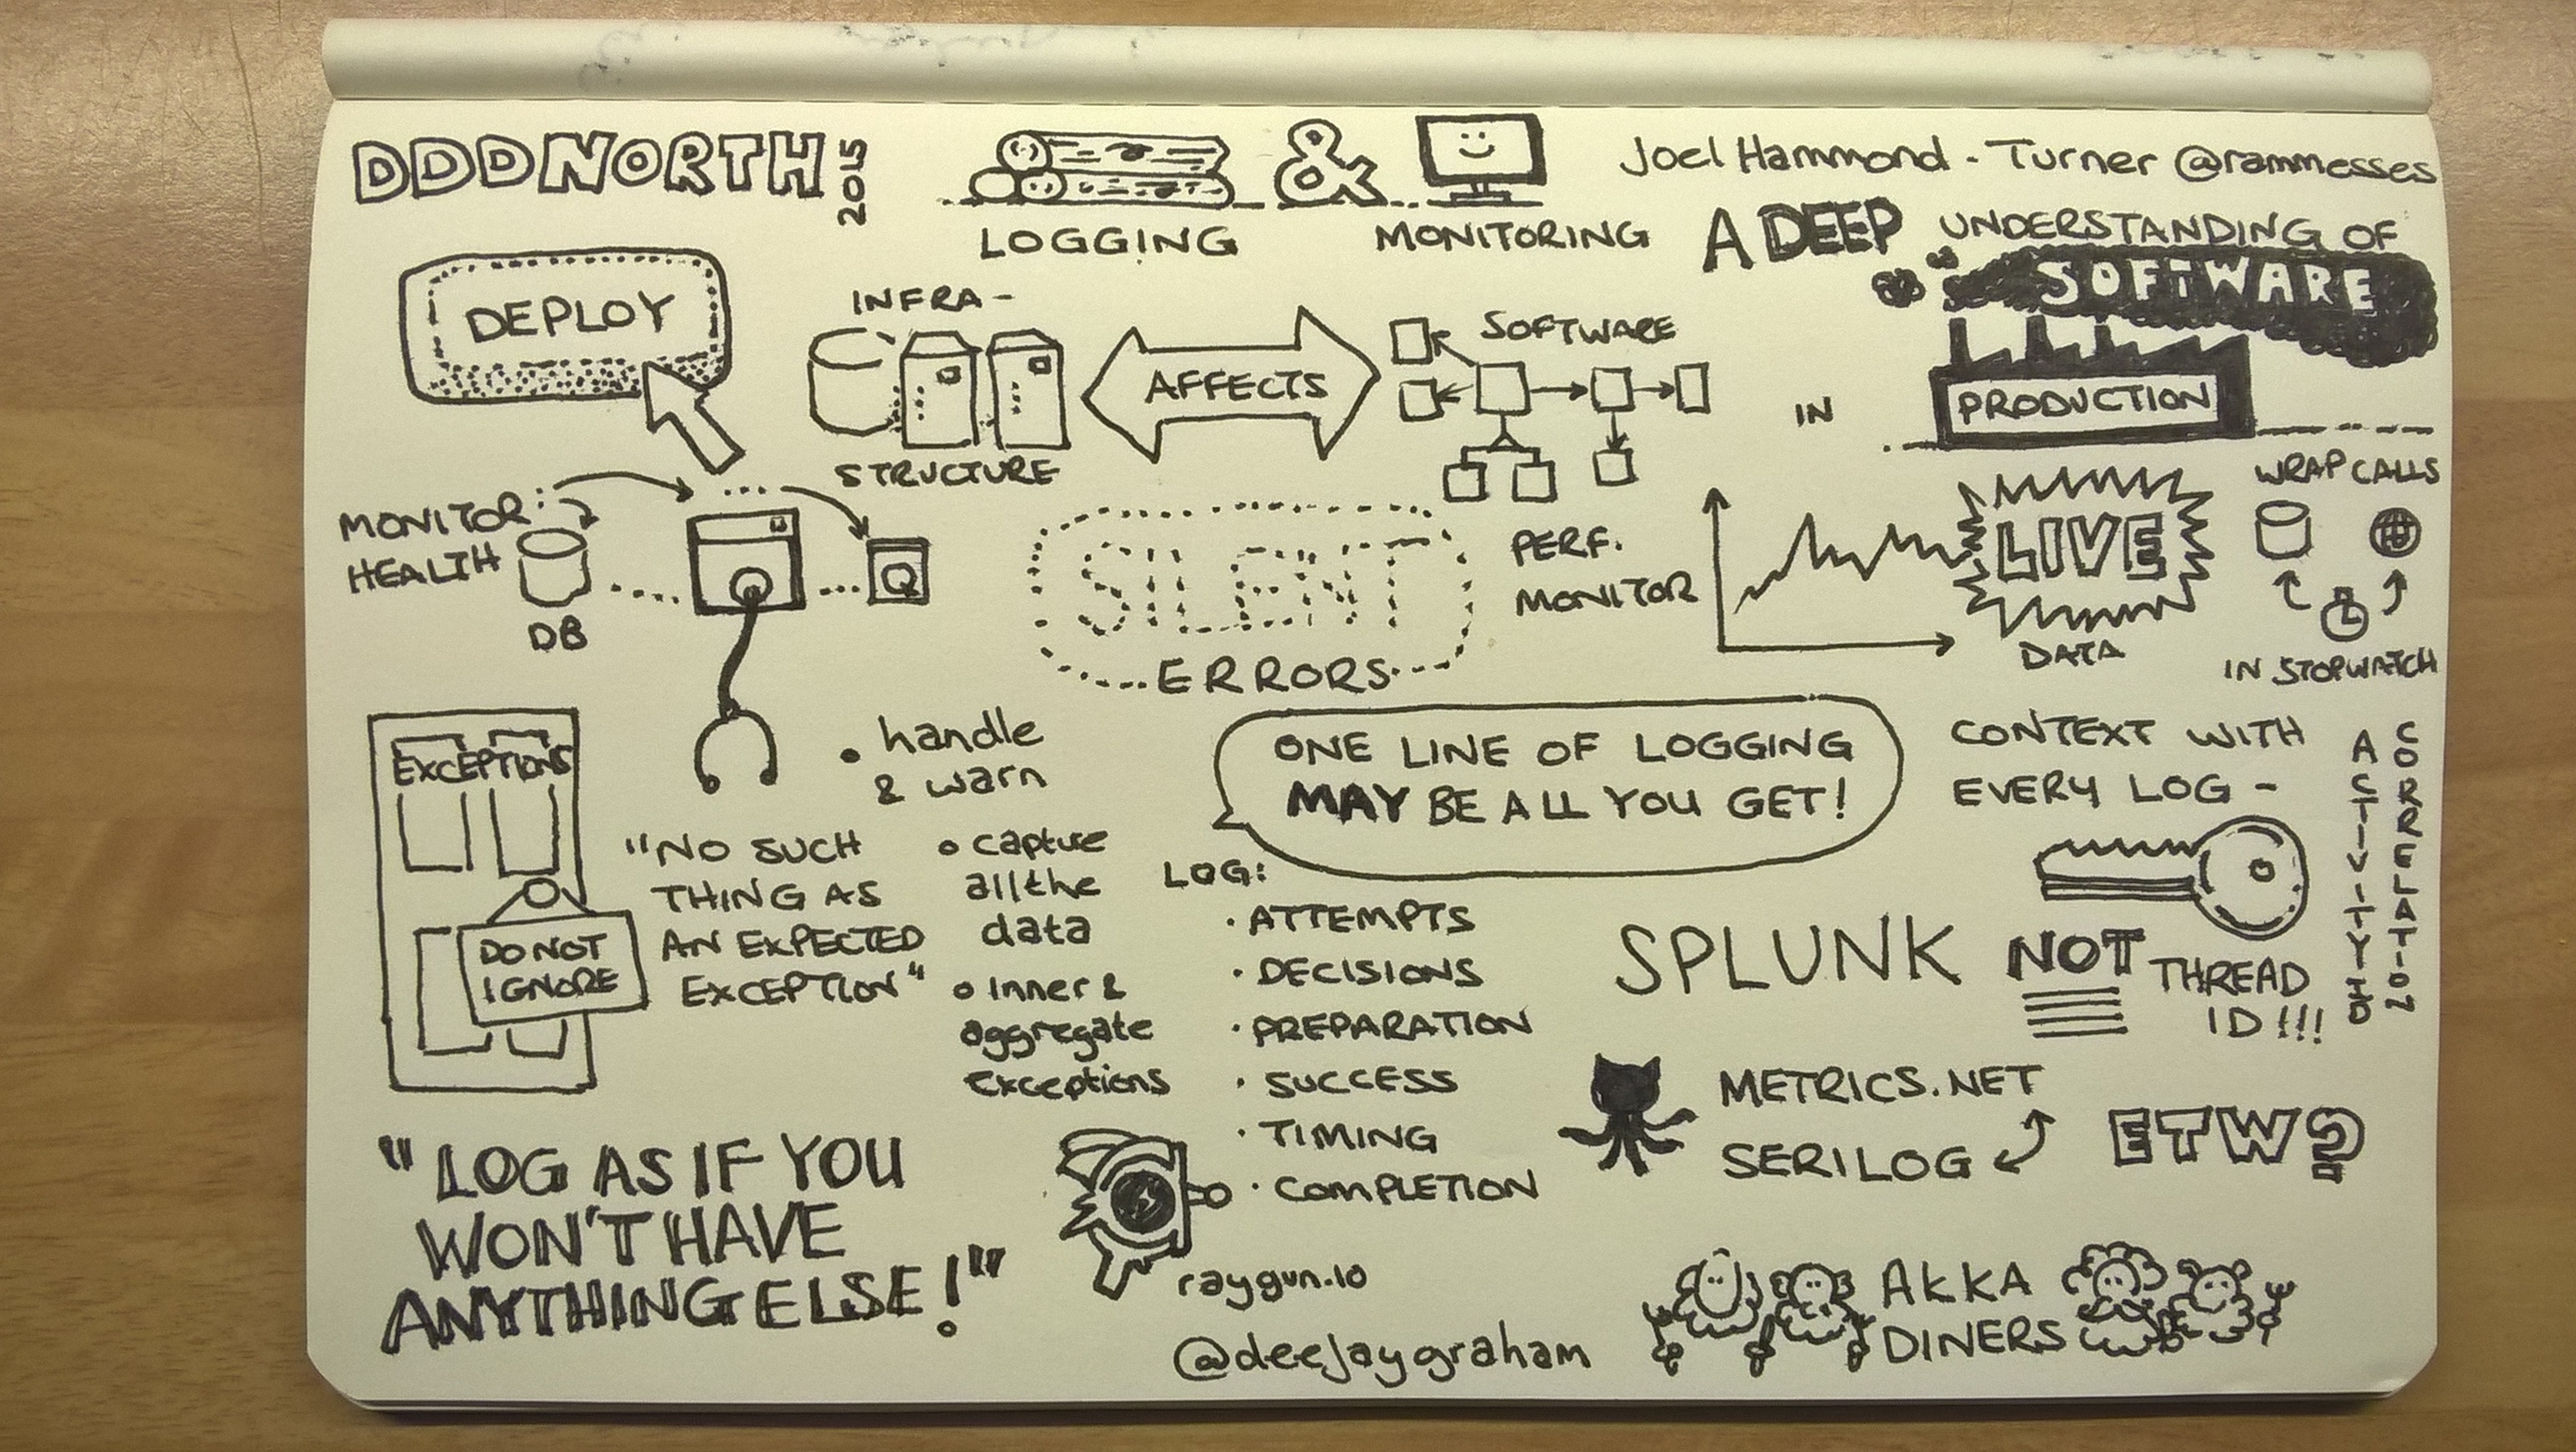 DDDNORTH 2015
LOGGING & MONITORING
Joel Hammond-Turner @rammesses
A DEEP UNDERSTANDING OF
SOFTWARE
IN PRODUCTION
DEPLOY
INFRA-
STRUCTURE
AFFECTS
SOFTWARE
MONITOR
HEALTH
DB
Q
SILENT
ERRORS
PERF.
MONITOR
LIVE
DATA
WRAP CALLS
IN STOPWATCH
EXCEPTIONS
DO NOT
IGNORE
"NO SUCH
THING AS
AN EXPECTED
EXCEPTION"
• handle
& warn
• capture
all the
data
• Inner &
aggregate
exceptions
ONE LINE OF LOGGING
MAY BE ALL YOU GET!
LOG:
· ATTEMPTS
· DECISIONS
· PREPARATION
· SUCCESS
· TIMING
· COMPLETION
CONTEXT WITH
EVERY LOG -
ACTIVITY ID
CORRELATION
NOT THREAD
ID!!!
SPLUNK
METRICS.NET
SERILOG
ETW?
"LOG AS IF YOU
WON'T HAVE
ANYTHING ELSE!"
raygun.io
@deejaygraham
AKKA
DINERS